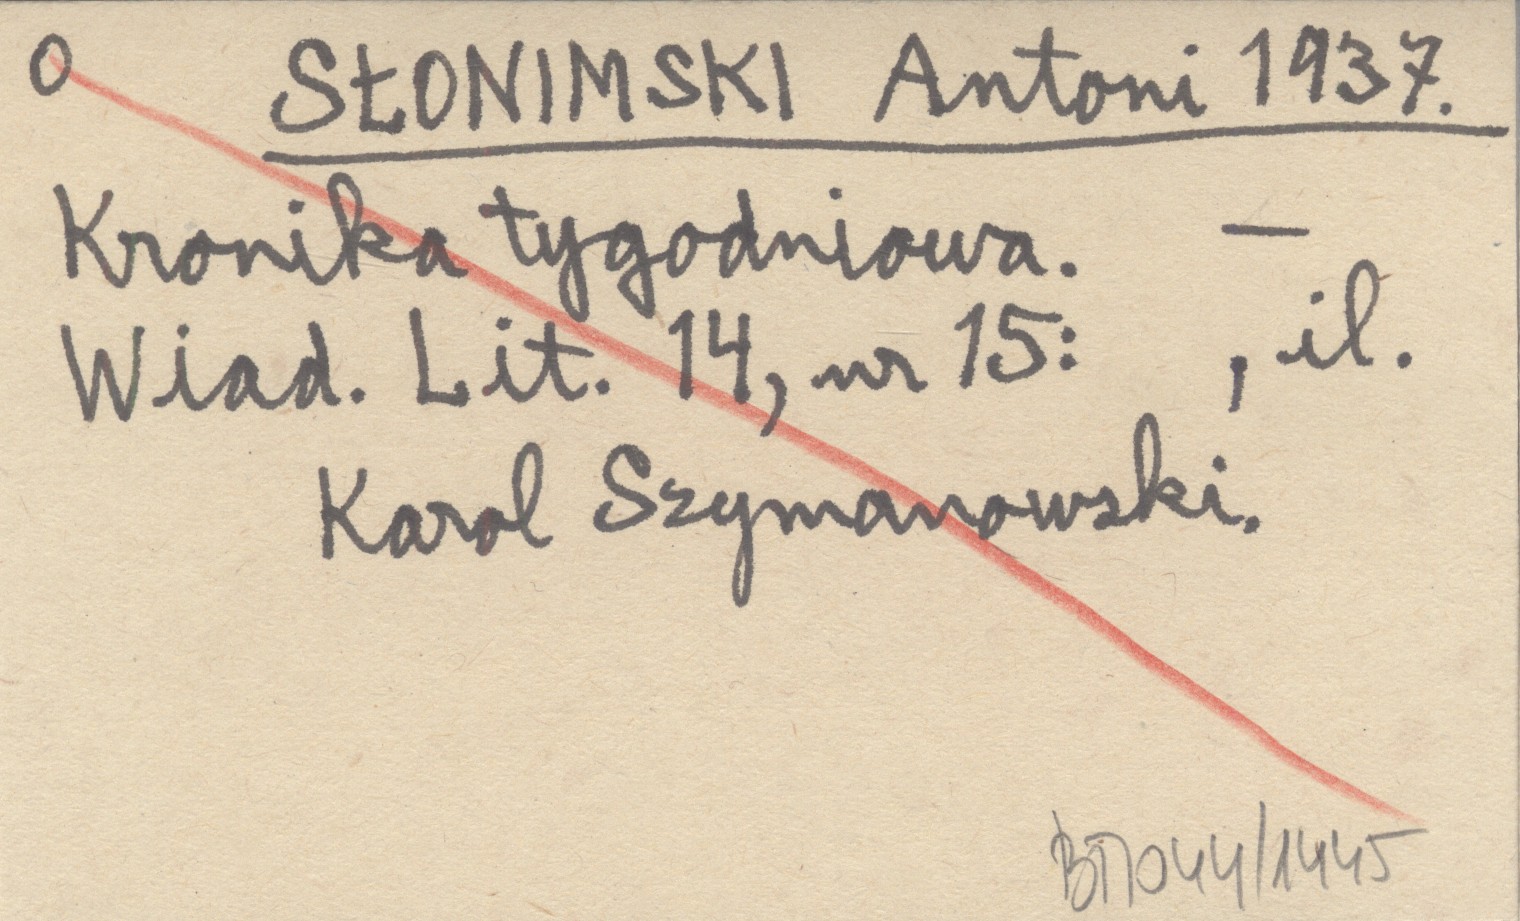 O SŁONIMSKI Antoni 1937.
Kronika tygodniowa. —
Wiad. Lit. 14, nr 15: , il.
Karol Szymanowski.
BП044/1445